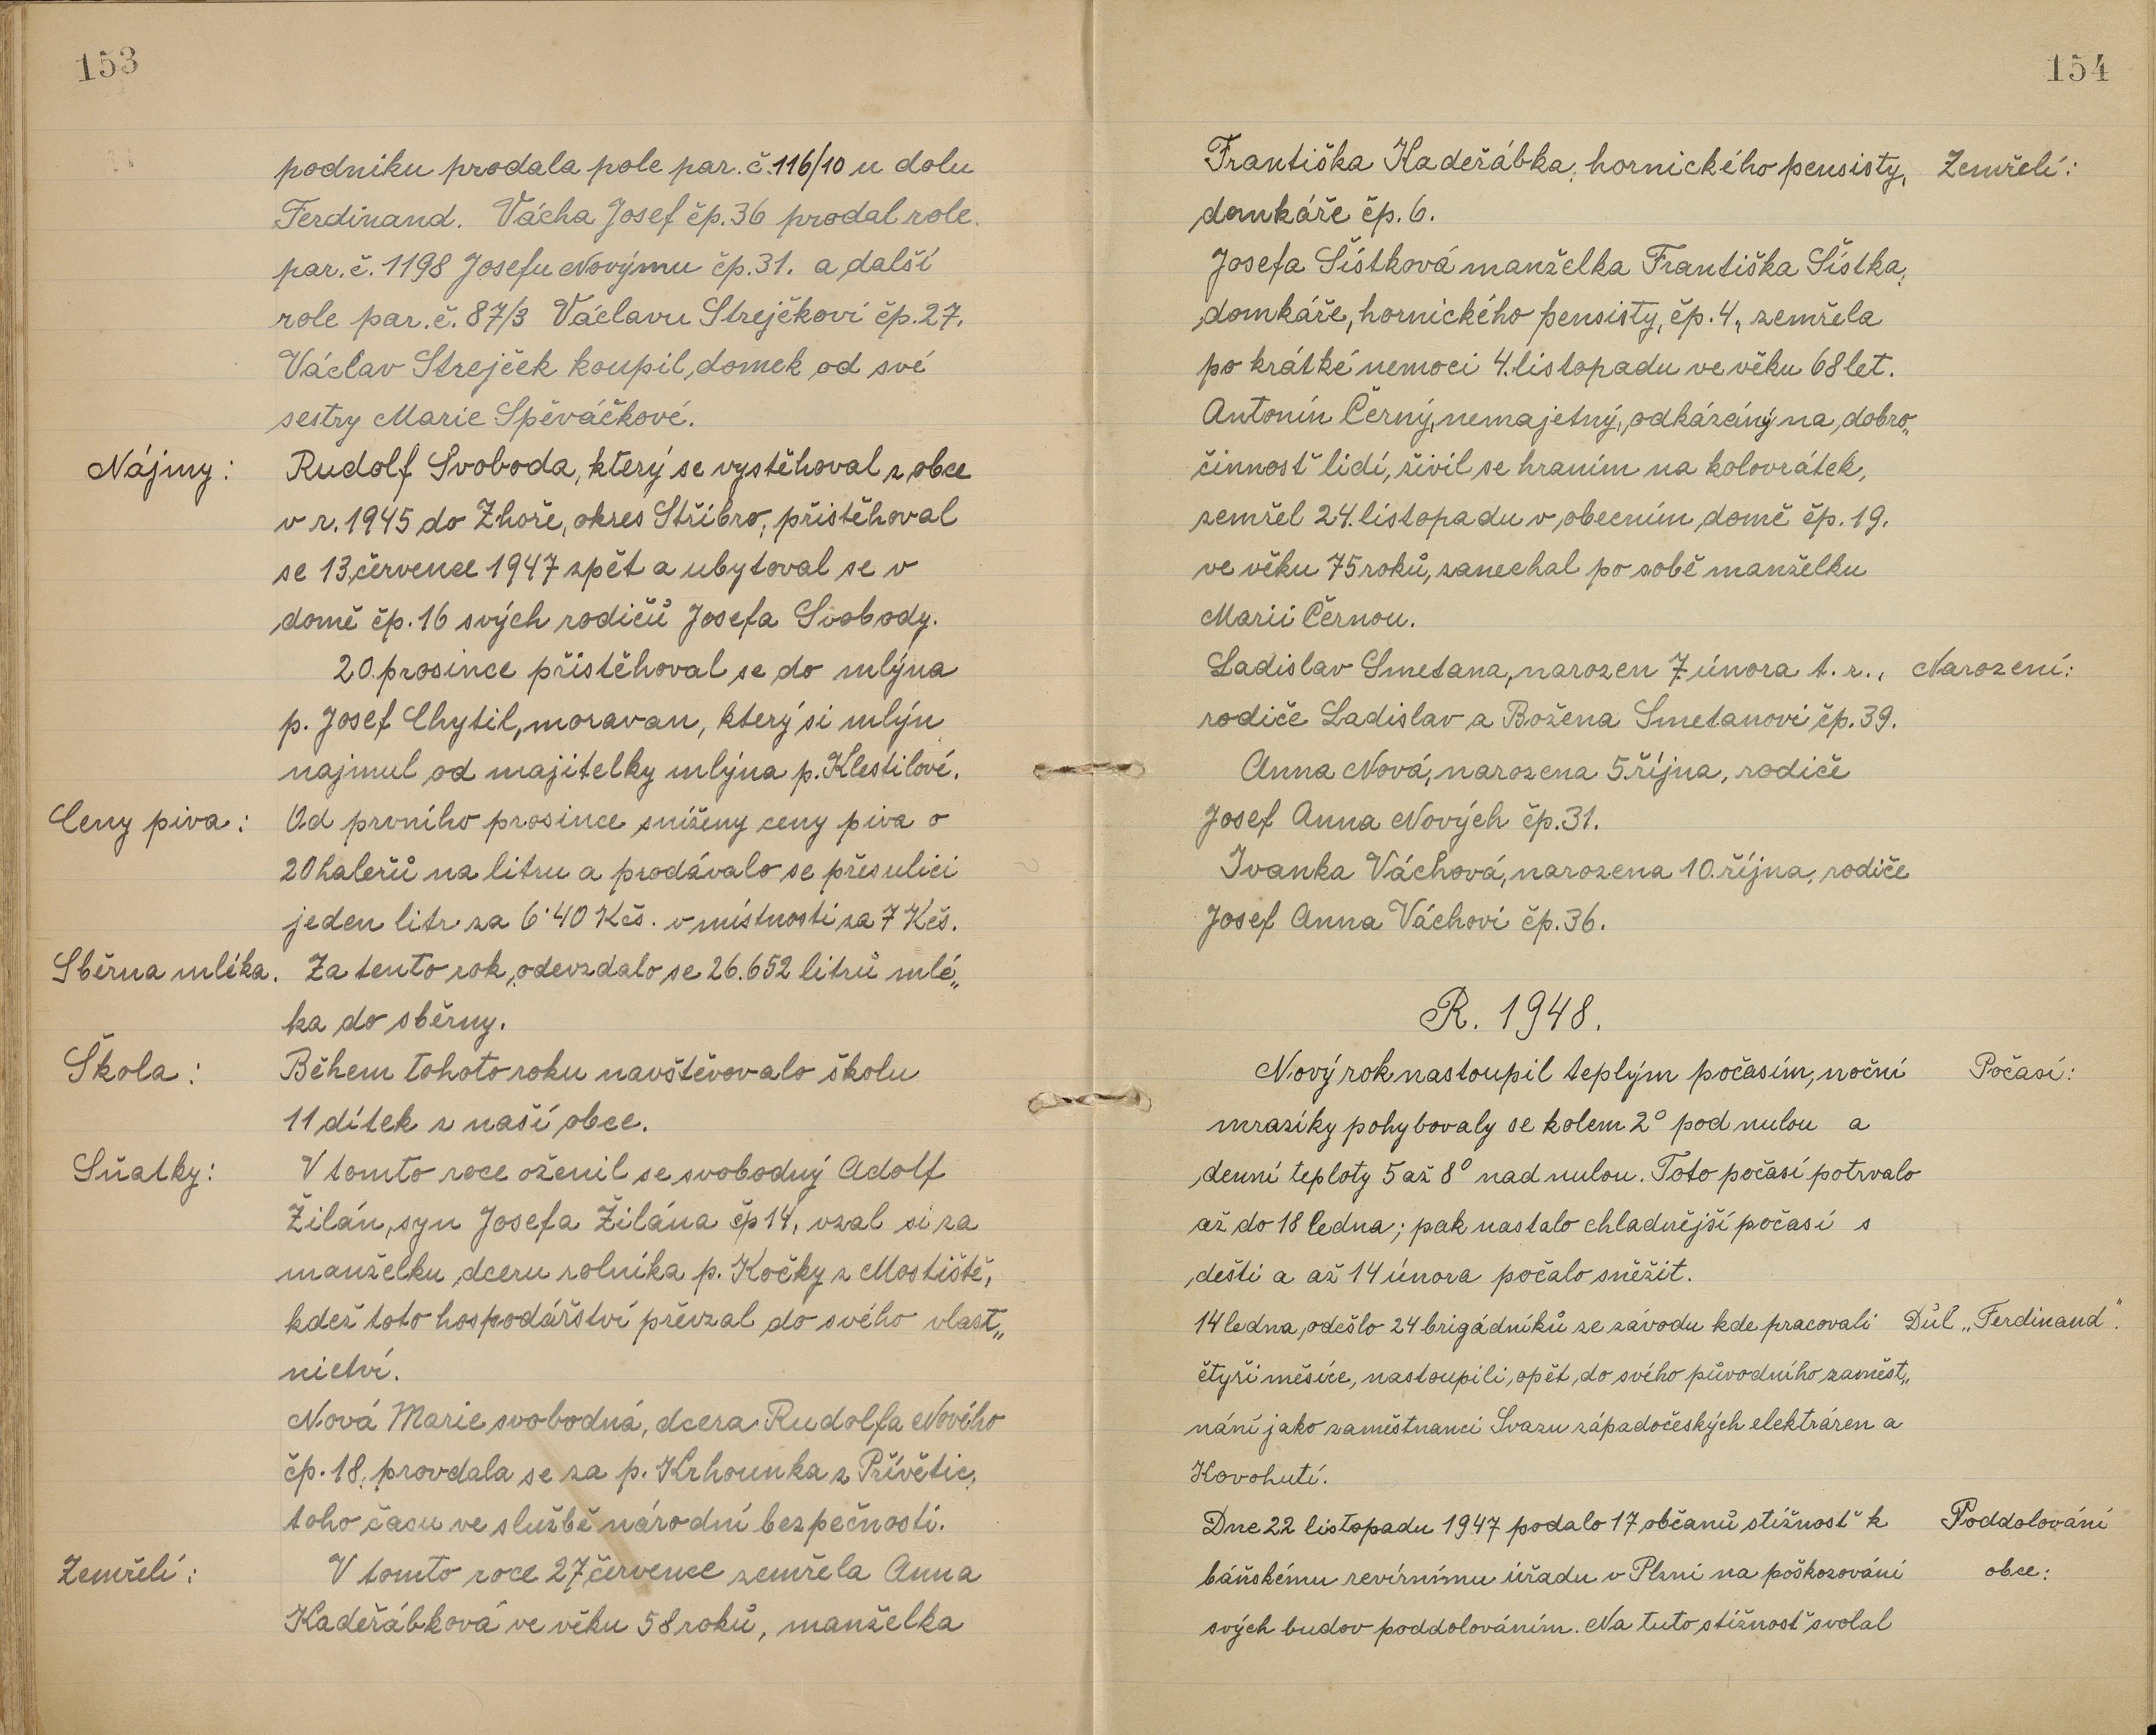 153
podniku prodala pole par. č. 116/10 u dolu
Ferdinand. Vácha Josef čp. 36 prodal role
par. č. 1198 Josefu Novýmu čp. 31. a další
role par. č. 87/3 Václavu Strejčkovi čp. 27.
Václav Strejček koupil domek od své
sestry Marie Spěváčkové.
Nájmy: Rudolf Svoboda, který se vystěhoval z obce
v r. 1945 do Zhoře, okres Stříbro, přistěhoval
se 13 července 1947 zpět a ubytoval se v
domě čp. 16 svých rodičů Josefa Svobody.
20. prosince přistěhoval se do mlýna
p. Josef Chytil, moravan, který si mlýn
najmul od majitelky mlýna p. Klestilové.
Ceny piva: Od prvního prosince sníženy ceny piva o
20 haleřů na litru a prodávalo se přes ulici
jeden litr za 6·40 Kčs. v místnosti za 7 Kčs.
Sběrna mléka. Za tento rok odevzdalo se 26.652 litrů mlé„
ka do sběrny.
Škola: Během tohoto roku navštěvovalo školu
11 dítek z naší obce.
Sňatky: V tomto roce oženil se svobodný Adolf
Žilán, syn Josefa Žilána čp 14, vzal si za
manželku dceru rolníka p. Kočky z Mostiště,
kdež toto hospodářství převzal do svého vlast„
nictví.
Nová Marie svobodná, dcera Rudolfa Nového
čp. 18, provdala se za p. Krhounka z Přívětic,
toho času ve službě národní bezpečnosti.
Zemřelí: V tomto roce 27 července zemřela Anna
Kadeřábková ve věku 58 roků, manželka
154
Františka Kadeřábka, hornického pensisty, Zemřelí:
domkáře čp. 6.
Josefa Šístková manželka Františka Šístka,
domkáře, hornického pensisty, čp. 4, zemřela
po krátké nemoci 4. listopadu ve věku 68 let.
Antonín Černý, nemajetný, odkázáný na dobro„
činnosť lidí, živil se hraním na kolovrátek,
zemřel 24. listopadu v obecním domě čp. 19.
ve věku 75 roků, zanechal po sobě manželku
Marii Černou.
Ladislav Smetana, narozen 7 února t. r., Narození:
rodiče Ladislav a Božena Smetanovi čp. 39.
Anna Nová, narozena 5. října, rodiče
Josef Anna Nových čp. 31.
Ivanka Váchová, narozena 10. října, rodiče
Josef Anna Váchovi čp. 36.
R. 1948.
Nový rok nastoupil teplým počasím, noční Počasí:
mrazíky pohybovaly se kolem 2° pod nulou a
denní teploty 5 až 8° nad nulou. Toto počasí potrvalo
až do 18 ledna; pak nastalo chladnější počasí s
dešti a až 14 února počalo sněžit.
14 ledna odešlo 24 brigádníků ze závodu kde pracovali Důl „Ferdinand".
čtyři měsíce, nastoupili opět do svého původního zaměst„
nání jako zaměstnanci Svazu západočeských elektráren a
Kovohutí.
Dne 22 listopadu 1947 podalo 17 občanů stížnosť k Poddolování
báňskému revírnímu úřadu v Plzni na poškozování obce:
svých budov poddolováním. Na tuto stížnosť svolal